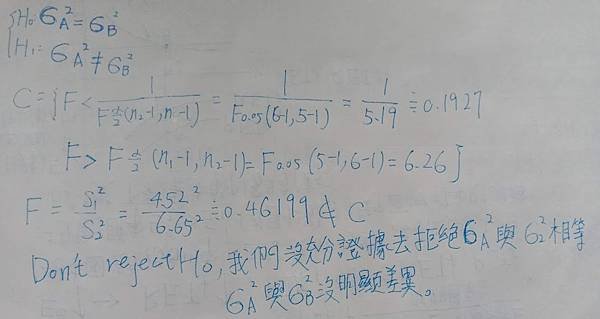 {H₀: σ_A² = σ_B²
{H₁: σ_A² ≠ σ_B²
C = {F < 1/F_{α/2}(n₂-1, n₁-1) = 1/F_{0.05}(6-1, 5-1) = 1/5.19 ≒ 0.1927
F > F_{α/2}(n₁-1, n₂-1) = F_{0.05}(5-1, 6-1) = 6.26}
F = S₁²/S₂² = 4.52²/6.65² ≒ 0.46199 ∉ C
Don't reject H₀, 我們沒充分證據去拒絕 σ_A² 與 σ₂² 相等
σ_A² 與 σ_B² 沒明顯差異。